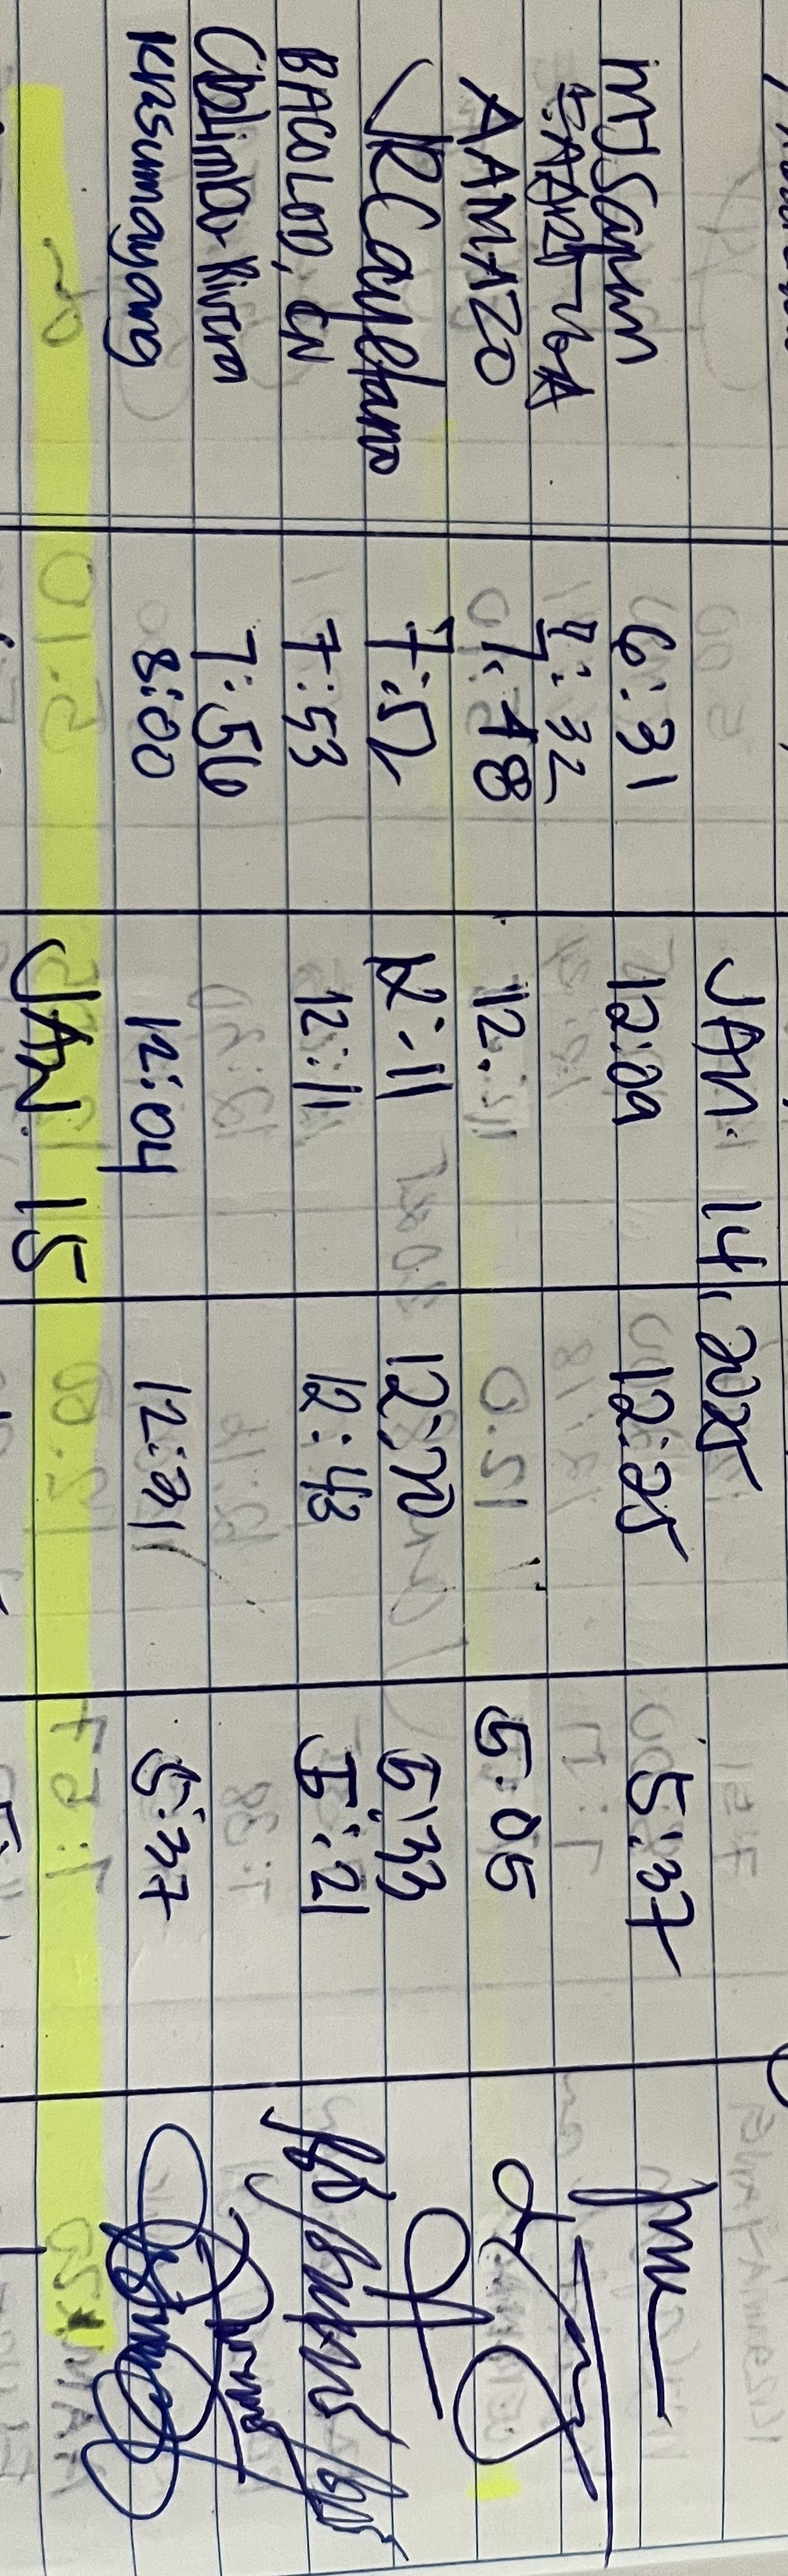 JAN. 14, 2025
MJ Sapun 6:31 12:09 12:25 5:37
7:32
AAMAZO 7:48 12:11 5:05
JRCayetano 7:52 12:11 12:20 5:33
BACOLOD, CN 7:53 12:11 12:43 5:21
Cbalimba-Rivera 7:56
krasumayang 8:00 12:04 12:21 5:37
JAN. 15